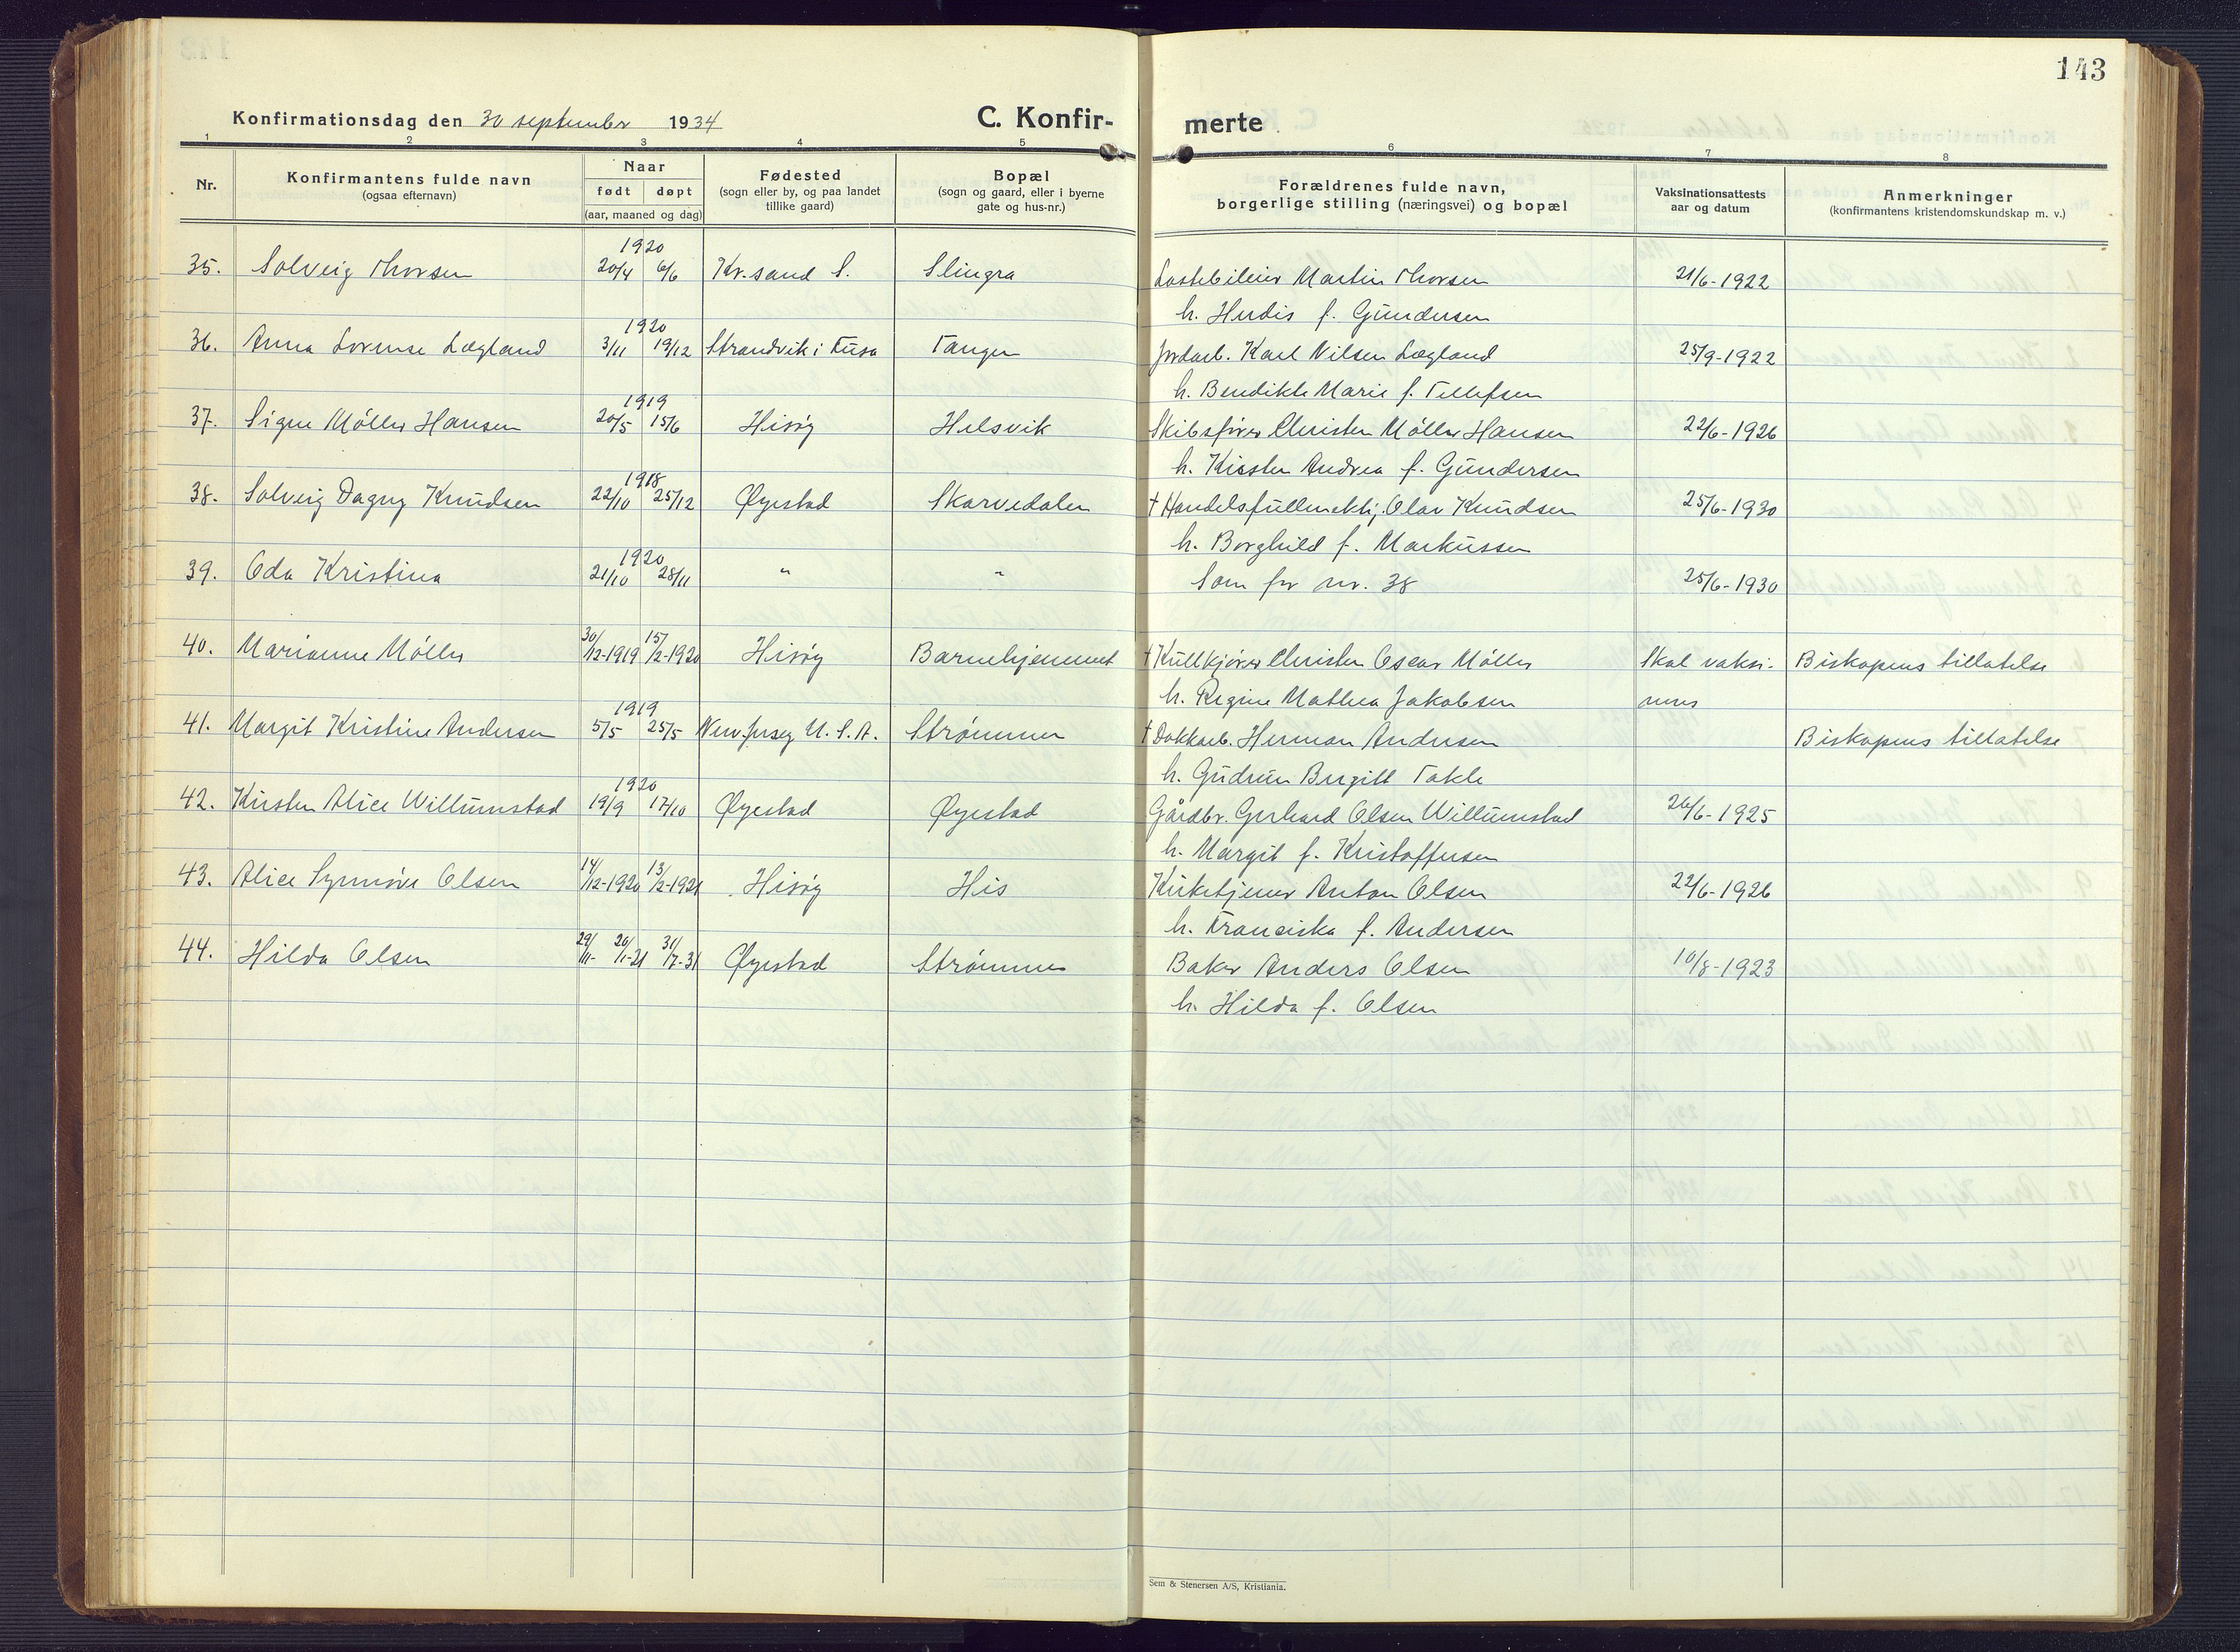 143
Konfirmationsdag den 30 september 1934
C. Konfirmerte
1 2 3 4 5 6 7 8
Nr.
Konfirmantens fulde navn
(ogsaa efternavn)
Naar
født døpt
(aar, maaned og dag)
Fødested
(sogn eller by, og paa landet
tillike gaard)
Bopæl
(sogn og gaard, eller i byerne
gate og hus-nr.)
Forældrenes fulde navn,
borgerlige stilling (næringsvei) og bopæl
Vaksinationsattests
aar og datum
Anmerkninger
(konfirmantens kristendomskundskap m. v.)
1920
35. Solveig Thorsen 20/4 6/6 Kr.sand S. Slingra Lastebileier Martin Thorsen 21/6-1922
h. Herdis f. Gundersen
1920
36. Anna Lovense Lægland 3/11 19/12 Strandvik i Fusa Tangen Jordarb. Karl Nilsen Lægland 25/9-1922
h. Bendikte Marie f. Tellefsen
1919
37. Signe Møller Hansen 20/5 15/6 Hisøy Helsvik Skibsfører Christen Møller Hansen 22/6-1926
h. Kirsten Andrea f. Gundersen
1918
38. Solveig Dagny Knudsen 22/10 25/12 Øyestad Skarvedalen † Handelsfullmektig Olav Knudsen 25/6-1930
h. Borghild f. Markussen
1920
39. Oda Kristina 21/10 28/11 " " Som for nr. 38 25/6-1930
40. Marianne Møller 30/12-1919 15/2-1920 Hisøy Barnehjemmet † Kullkjører Christen Oscar Møller Skal vaksi- Biskopens tillatelse
h. Regine Mathea Jakobsen neres
1919
41. Margit Kristine Andersen 5/5 25/5 New Jersey U.S.A. Strømmen † Dokkarb. Herman Andersen Biskopens tillatelse
h. Gudrun Birgitt Takle
1920
42. Kirsten Alice Willumstad 19/9 17/10 Øyestad Øyestad Gårdbr. Gerhard Olsen Willumstad 26/6-1925
h. Margit f. Kristoffersen
43. Alice Synnøve Olsen 14/12-1920 13/2-1921 Hisøy His Kirketjener Anton Olsen 22/6-1926
h. Franciska f. Andersen
44. Hilda Olsen 31/7-31 Øyestad Strømmen Baker Anders Olsen 10/8-1923
h. Hilda f. Olsen
Sem & Stenersen A/S, Kristiania.